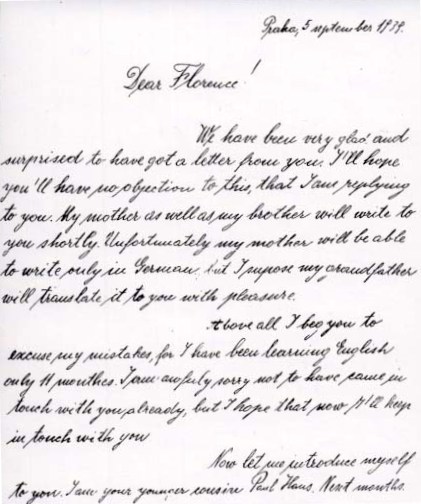 Praha, 5 september 1939.
Dear Florence!
We have been very glad and
surprised to have got a letter from you. I'll hope
you'll have no objection to this, that I am replying
to you. My mother as well as my brother will write to
you shortly. Unfortunately my mother will be able
to write only in German, but I supose my grandfather
will translate it to you with pleasure.
Above all I beg you to
excuse my mistakes, for I have been learning English
only 11 monthes. I am awfuly sorry not to have came in
touch with you already, but I hope that now I'll keep
in touch with you
Now let me introduce myself
to you. I am your younger cousin Paul Hans. Next months